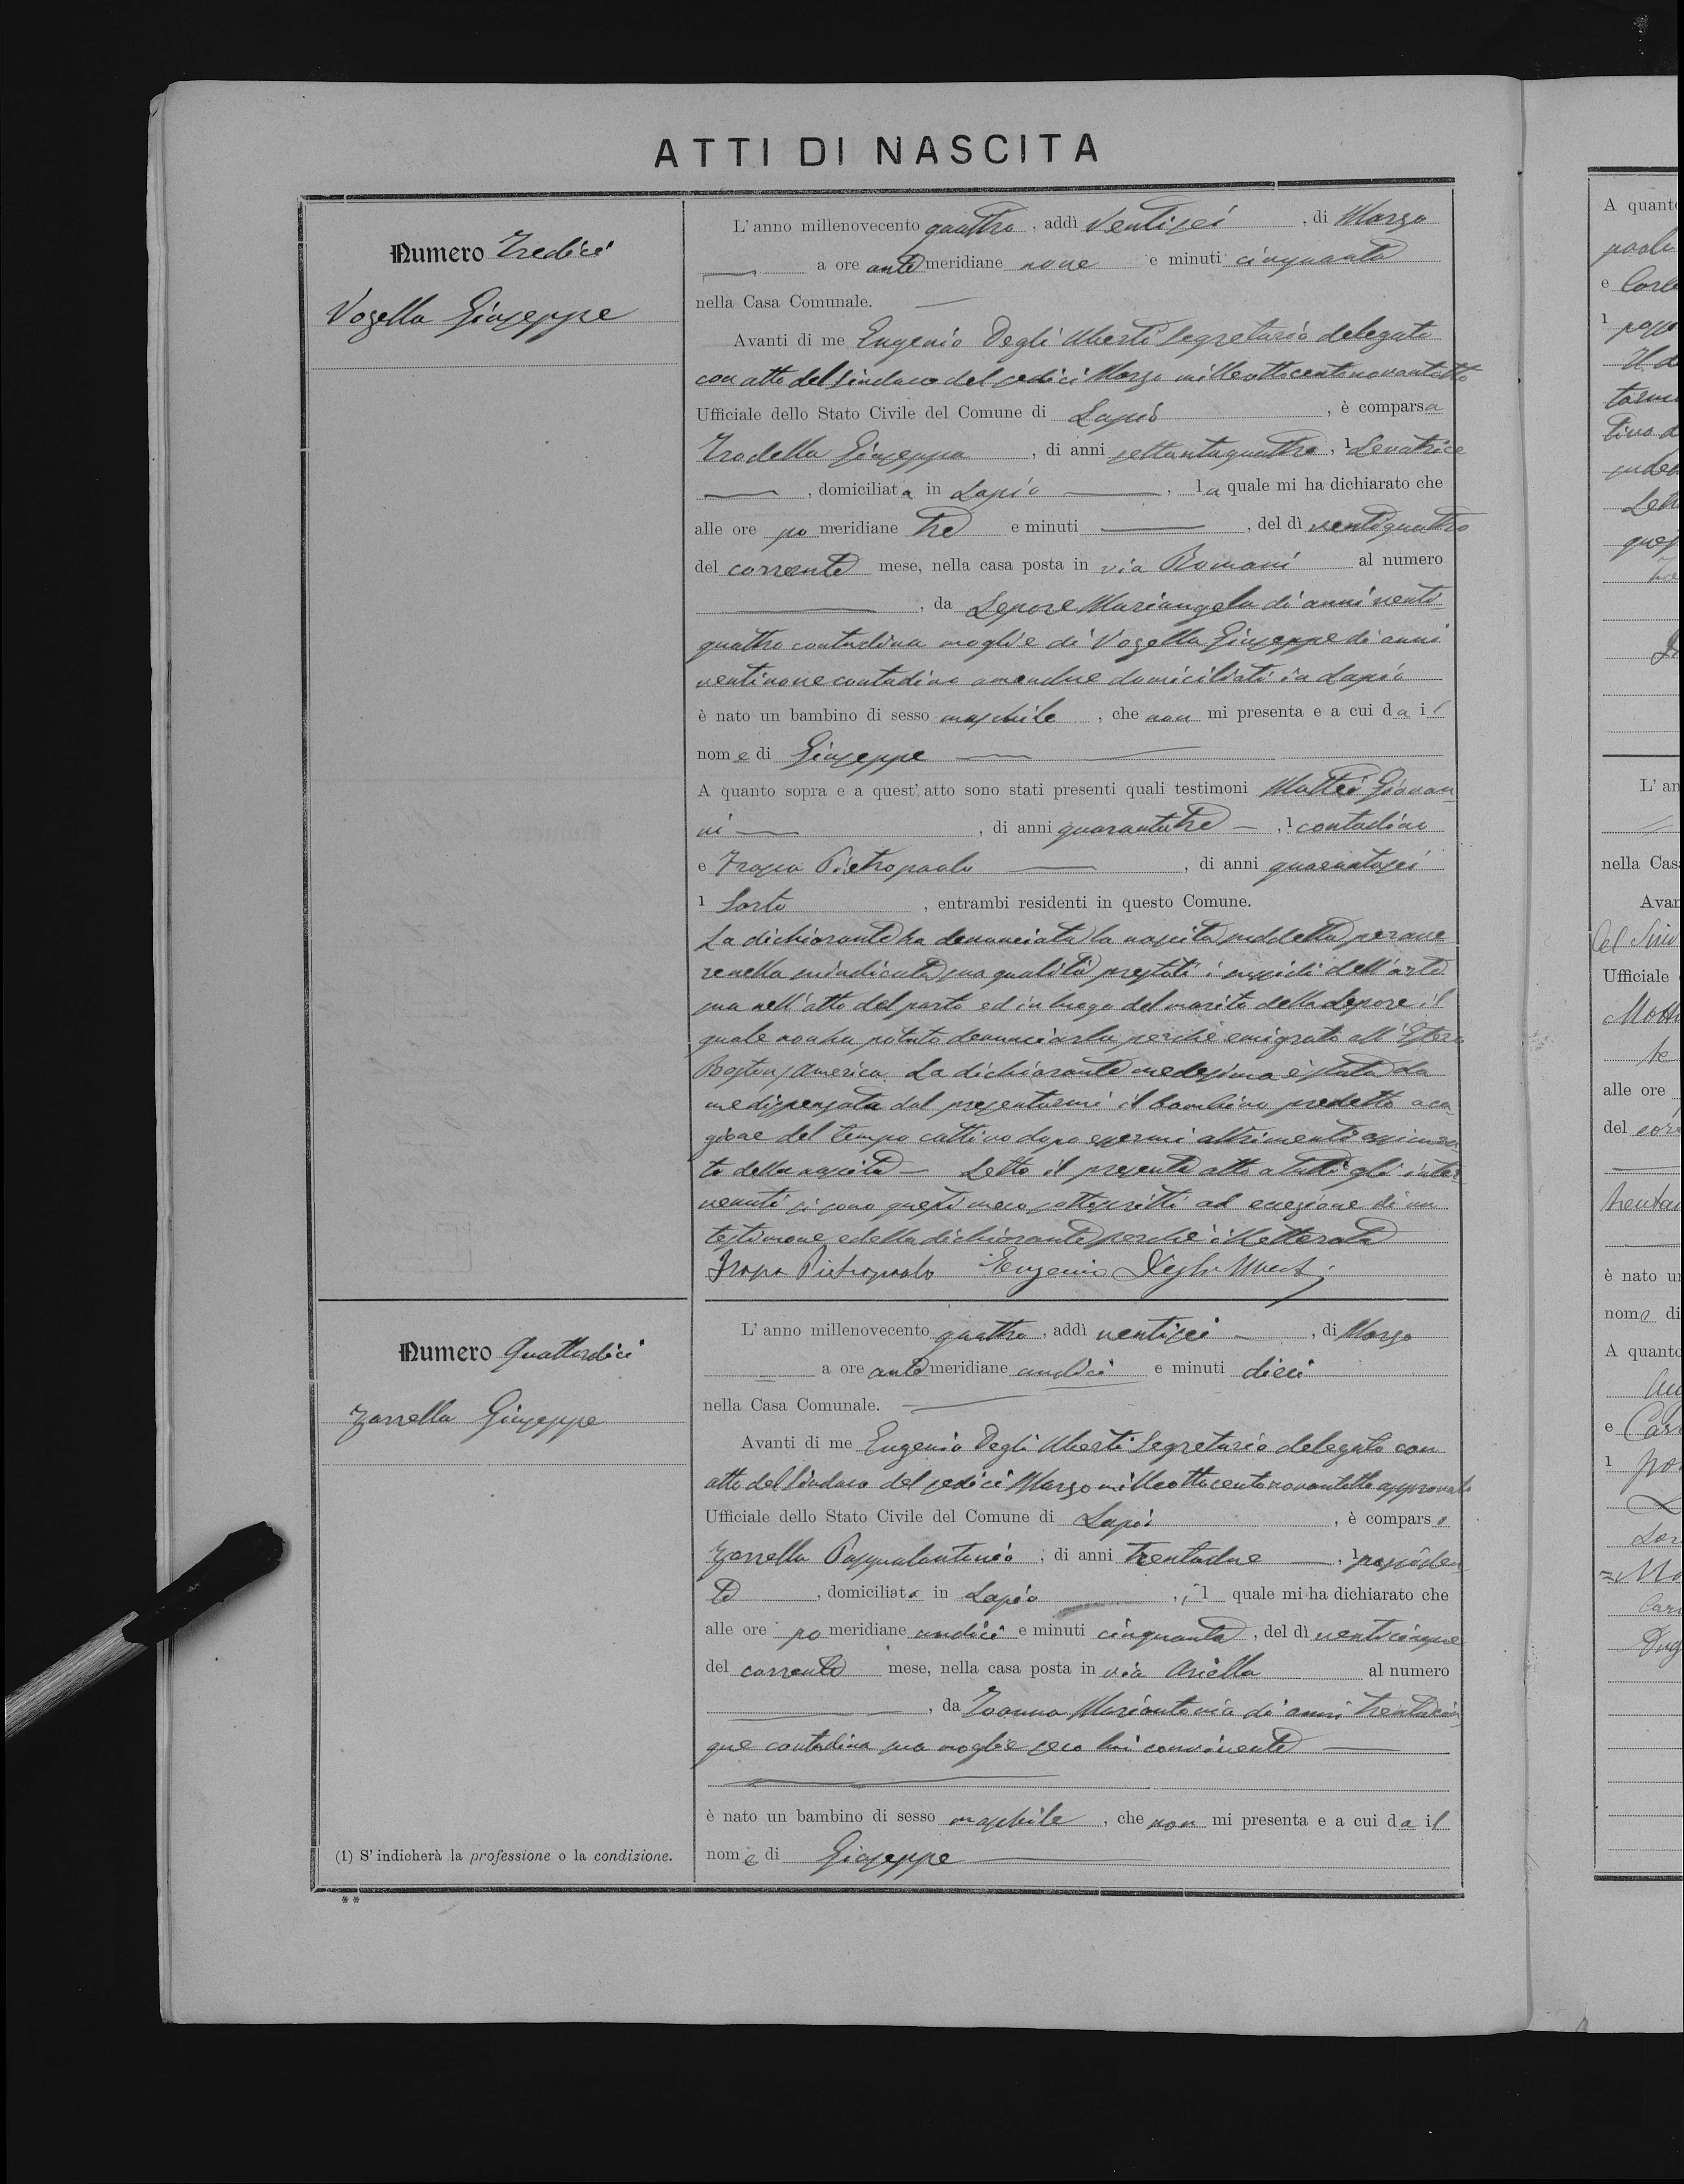 ATTI DI NASCITA
Numero Tredici
Vozella Giuseppe
L'anno millenovecento quattro, addì Ventisei, di Marzo
a ore antemeridiane nove e minuti cinquanta
nella Casa Comunale.
Avanti di me Eugenio Degli Uberti Segretario delegato
con atto del Sindaco del sedici Marzo milleottocentonovantotto
Ufficiale dello Stato Civile del Comune di Lapio, è comparsa
Trodella Giuseppa, di anni settantaquattro, 1 Levatrice
, domiciliata in Lapio, la quale mi ha dichiarato che
alle ore pomeridiane tre e minuti, del dì ventiquattro
del corrente mese, nella casa posta in via Romani al numero
, da Lepore Mariangela di anni venti
quattro contadina moglie di Vozella Giuseppe di anni
ventinove contadino amendue domiciliati in Lapio
è nato un bambino di sesso maschile, che non mi presenta e a cui da il
nome di Giuseppe
A quanto sopra e a quest'atto sono stati presenti quali testimoni Mattei Giovan
ni, di anni quarantatre, 1 contadino
e Pietropaolo, di anni quarantasei
1 Sarto, entrambi residenti in questo Comune.
La dichiarante ha denunciata la nascita suddetta per ave
re nella suindicata sua qualità prestati i dell'arte
sua nell'atto del parto ed in luogo del marito della Lepore il
quale non ha potuto denunciarla perché emigrato all'Estero
Boston America. La dichiarante medesima è stata da
me dispensata dal presentarmi il bambino predetto a ca
gione del tempo cattivo dopo essermi altrimenti assicura
to della nascita - Letto il presente atto a tutti gli inter
venuti si sono questi meco sottoscritti ad eccezione di un
testimone e della dichiarante perché illetterata
Pietropaolo Eugenio Degli Uberti
Numero Quattordici
Zarrella Giuseppe
L'anno millenovecento quattro, addì ventisei, di Marzo
a ore antemeridiane undici e minuti dieci
nella Casa Comunale.
Avanti di me Eugenio Degli Uberti Segretario delegato con
atto del Sindaco del sedici Marzo milleottocentonovantotto approvato
Ufficiale dello Stato Civile del Comune di Lapio, è comparso
Zarrella Pasqualantonio, di anni trentadue, 1 possiden
te, domiciliato in Lapio, il quale mi ha dichiarato che
alle ore pomeridiane undici e minuti cinquanta, del dì venticinque
del corrente mese, nella casa posta in via Ariella al numero
, da Mariantonia di anni trentacin
que contadina sua moglie seco lui convivente
è nato un bambino di sesso maschile, che non mi presenta e a cui da il
nome di Giuseppe
(1) S'indicherà la professione o la condizione.
**
A quanto
e
1
L'an
nella Cas
Avan
Ufficiale
alle ore
del
è nato un
nome di
A quanto
e
1